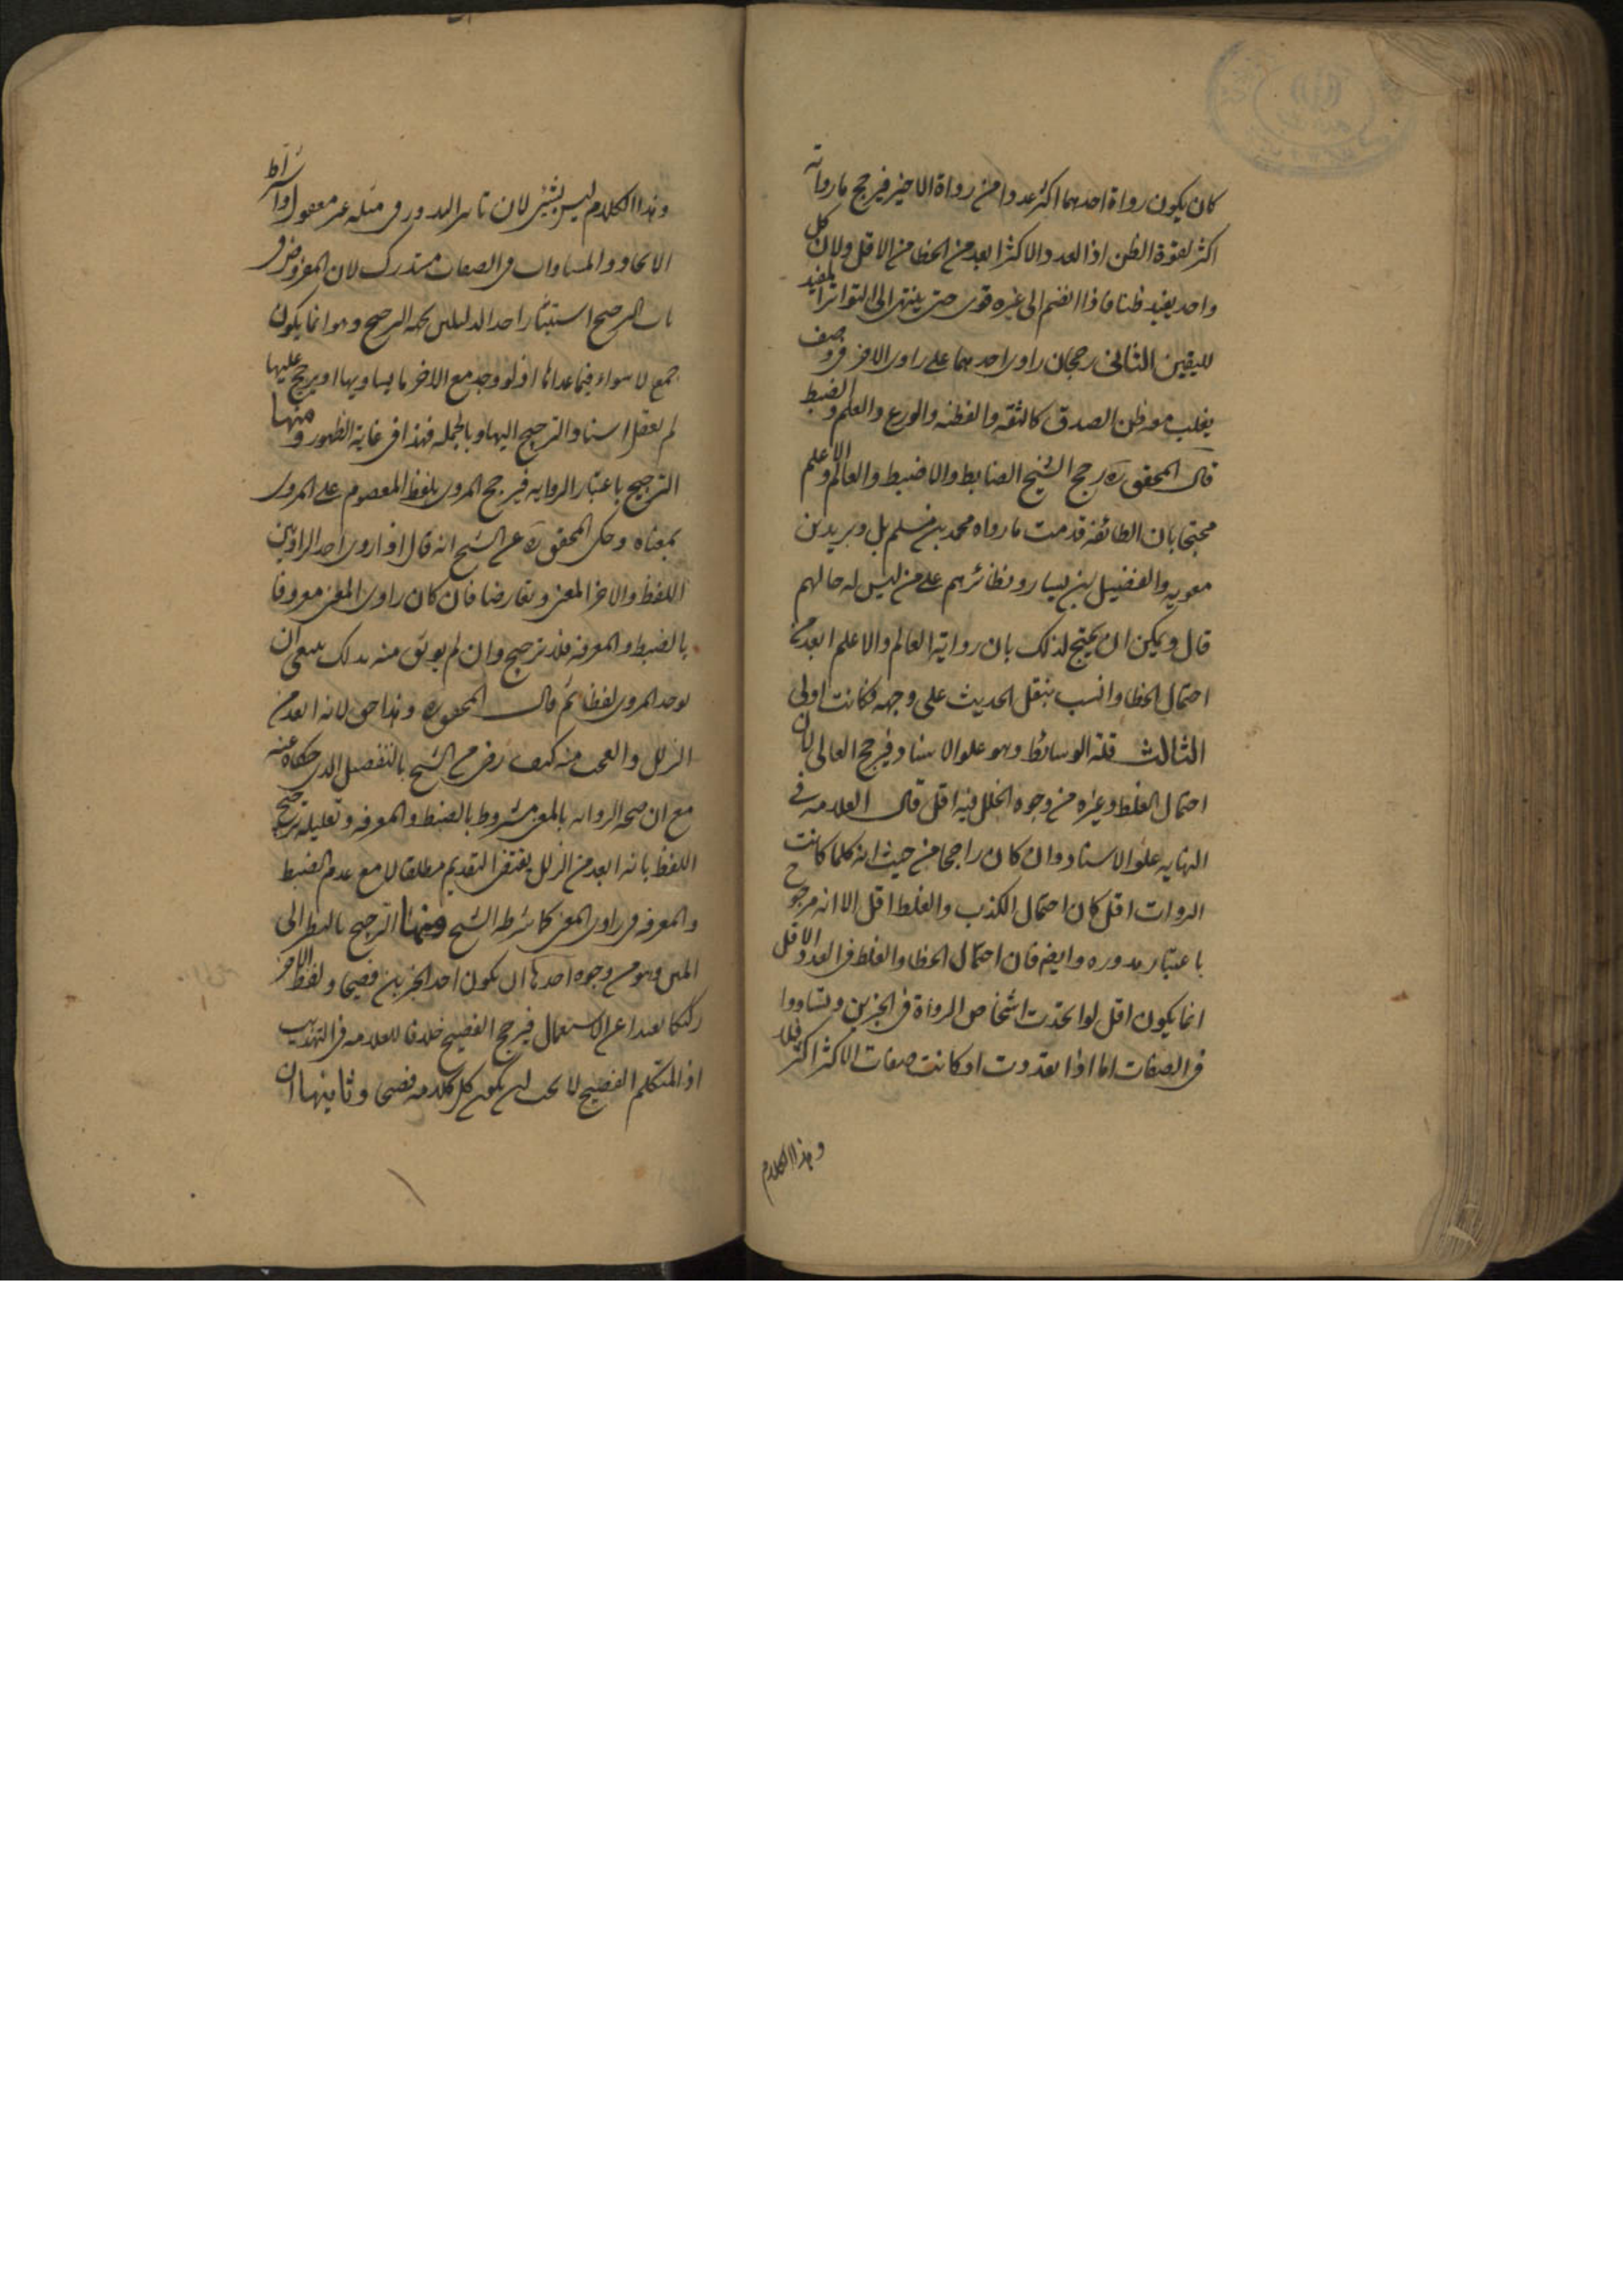 كان يكون رواة احدهما اكثر عددا من رواة الاخر فيرجح ما رواته
اكثر لقوة الظن اذ العدد الاكثر ابعد من الخطا من الاقل ولان كل
واحد يفيد ظنا فاذا انضم الى غيره قوى حتى ينتهى الى التواتر المفيد
لليقين الثانى رجحان راوى احدهما على راوى الاخر فى وصف
يغلب معه ظن الصدق كالثقة والفطنه والورع والعلم والضبط
قال المحقق ره رجح الشيخ الضابط والاضبط والعالم والاعلم
محتجا بان الطائفه قدمت ما رواه محمد بن مسلم بل وبريد بن
معويه والفضيل بن يسار ونظائرهم على من ليس له حالهم
قال ويمكن ان يحتج لذلك بان رواية العالم والاعلم ابعد من
احتمال الخطا وانسب بنقل الحديث على وجهه فكانت اولى
الثالث قلة الوسائط وهو علو الاسناد فيرجح العالى لان
احتمال الغلط وغيره من وجوه الخلل فيه اقل قال العلامه فى
النهايه علو الاسناد وان كان راجحا من حيث انه كلما كانت
الروات اقل كان احتمال الكذب والغلط اقل الا انه مرجوح
باعتبار ندوره وايضم فان احتمال الخطا والغلط فى العدد الاقل
انما يكون اقل لو اتحدت اشخاص الرواة فى الخبرين وتساووا
فى الصفات اما اذا تعددت او كانت صفات الاكثر اكثر فلا
وهذا الكلام
وهذا الكلام ليس بشئ لان تاثير الندور فى مثله غير معقول واشتراط
الاتحاد والمساوات فى الصفات مستدرك لان المفروض فى
باب الترجيح استيثار احد الدليلين بجهة الترجيح وهو انما يكون
مع الاستواء فيما عداها اذ لو وجد مع الاخر ما يساويها او يرجح عليها
لم يعقل اسناد الترجيح اليها وبالجمله فهذا فى غاية الظهور ومنها
الترجيح باعتبار الروايه فيرجح المروى بلفظ المعصوم على المروى
بمعناه وحكى المحقق ره عن الشيخ انه قال اذا روى احد الراويين
اللفظ والاخر المعنى وتعارضا فان كان راوى المعنى معروفا
بالضبط والمعرفه فلا ترجيح وان لم يوثق منه بذلك ينبغى ان
يوخذ المروى لفظا ثم قال المحقق ره وهذا حق لانه ابعد من
الزلل والعجب منه كيف رضى من الشيخ بالتفصيل الذى حكاه عنه
مع ان صحة الروايه بالمعنى مشروط بالضبط والمعرفه وتعليله ترجيح
اللفظ بانه ابعد من الزلل يقتضى التقديم مطلقا لا مع عدم الضبط
والمعرفه فى راوى المعنى كما شرطه الشيخ ومنها الترجيح بالنظر الى
المتن وهو من وجوه احدها ان يكون احد الخبرين فصيحا ولفظ الاخر
ركيكا بعيدا عن الاستعمال فيرجح الفصيح خلافا للعلامه فى التهذيب
اذ المتكلم الفصيح لا يجب ان يكون كل كلامه فصيحا وثانيها ان